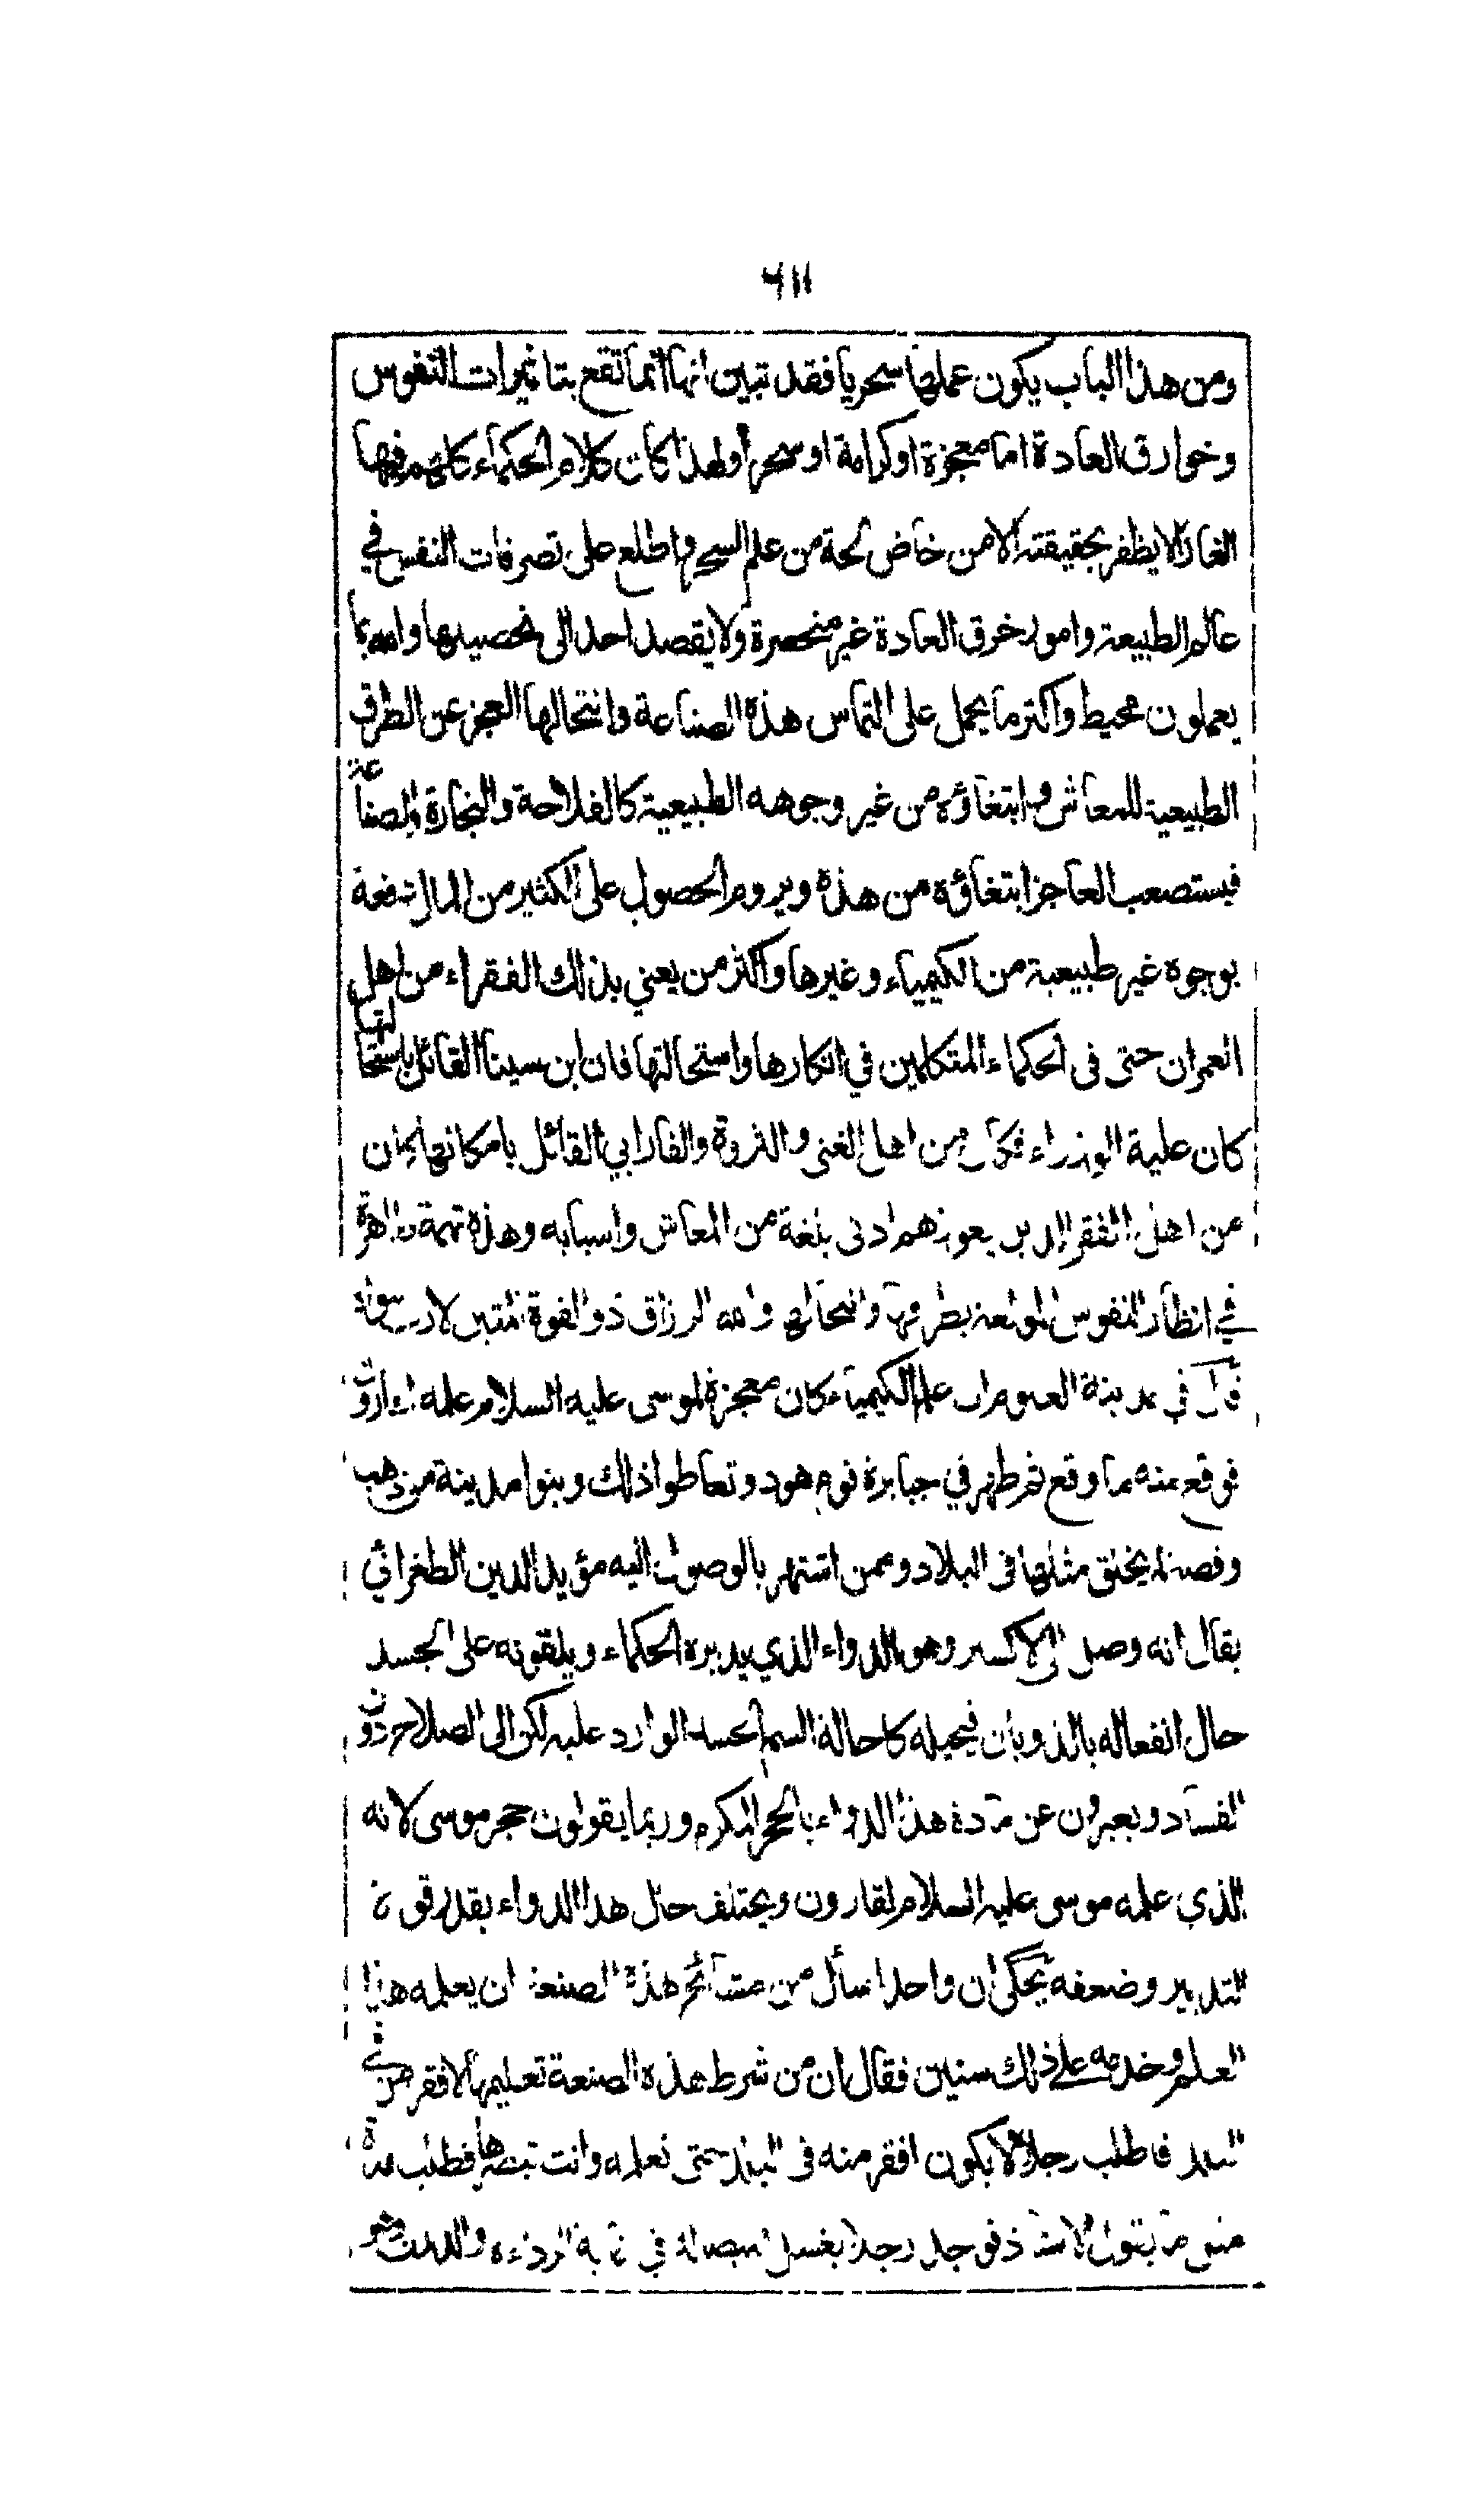 ٦١١
ومن هذا الباب يكون عملها سحريا فقد تبين انها انما تقع بتاثيرات النفوس
وخوارق العادة اما معجزة او كرامة او سحرا ولهذا كان كلام الحكماء كلهم فيها
الغازا لا يظفر بحقيقته الا من خاض لجة من علم السحر واطلع على تصرفات النفس في
عالم الطبيعة وامور خرق العادة غير منحصرة ولا يقصد احد الى تحصيلها والله بما
يعملون محيط واكثر ما يحمل على التماس هذه الصناعة وانتحالها العجز عن الطرق
الطبيعية للمعاش وابتغاؤه من غير وجوهه الطبيعية كالفلاحة والتجارة والصناعة
فيستصعب العاجز ابتغاؤه من هذه ويروم الحصول على الكثير من المال دفعة
بوجوه غير طبيعية من الكيمياء وغيرها واكثر من يعني بذلك الفقراء من اهل
العمران حتى فى الحكماء المتكلمين في انكارها واستحالتها فان ابن سينا القائل باستحالتها
كان علية الوزراء فكان من اهل الغنى والثروة والفارابي القائل بامكانها كان
من اهل الفقر الذين يعوزهم ادنى بلغة من المعاش واسبابه وهذه تهمة ظاهرة
في انظار النفوس المولعة بطرقها وانتحالها والله الرزاق ذو القوة المتين لا رب سواه
قال في مدينة العلوم ان علم الكيمياء كان معجزة لموسى عليه السلام علمه لقارون
فوقع منه ما وقع ثم ظهر في جبابرة قوم هود وتعاطوا ذلك وبنوا مدينة من ذهب
وفضة لم يخلق مثلها فى البلاد وممن اشتهر بالوصول اليه مؤيد الدين الطغرائي
يقال انه وصل الى الاكسير وهو الدواء الذي يدبره الحكماء ويلقونه على الجسد
حال انفعاله بالذوبان فيحيله كاحالة السم الجسد الوارد عليه لكن الى الصلاح دون
الفساد ويعبرون عن مادة هذا الدواء بالحجر المكرم وربما يقولون حجر موسى لانه
الذي علمه موسى عليه السلام لقارون ويختلف حال هذا الدواء بقدر قوة
التدبير وضعفه يحكى ان واحدا سأل من مشائخ هذه الصنعة ان يعلمه هذا
العلم وخدمه على ذلك سنين فقال ان من شرط هذه الصنعة تعليمها لافقر من في
البلد فاطلب رجلا لا يكون افقر منه فى البلد حتى نعلمه وانت تبصرها فطلب مدة
مثل ما يقول الاستاذ فوجد رجلا يغسل قميصا له في غاية الرداءة والدرن وهو